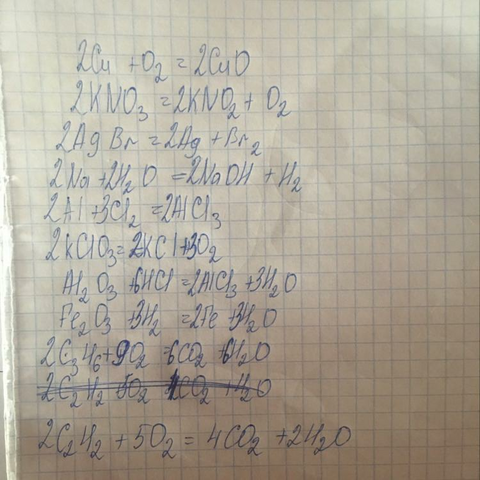 2Cu + O₂ = 2CuO
2KNO₃ = 2KNO₂ + O₂
2AgBr = 2Ag + Br₂
2Na + 2H₂O = 2NaOH + H₂
2Al + 3Cl₂ = 2AlCl₃
2KClO₃ = 2KCl + 3O₂
Al₂O₃ 6HCl = 2AlCl₃ + 3H₂O
Fe₂O₃ 3H₂ = 2Fe 3H₂O
2C₃H₆ + 9O₂ = 6CO₂ 6H₂O
2C₂H₂ 5O₂ 4CO₂ H₂O
2C₂H₂ + 5O₂ = 4CO₂ + 2H₂O